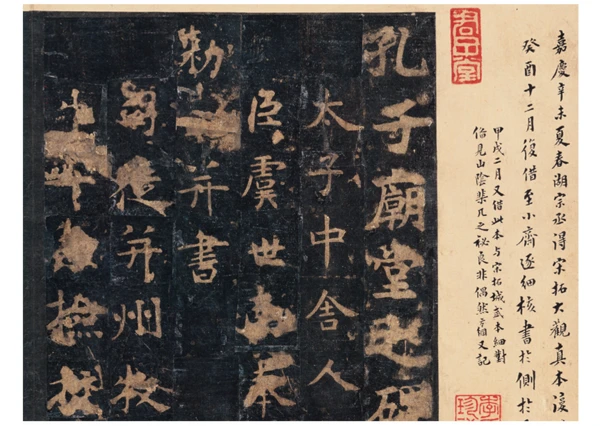 嘉慶辛未夏春湖宗丞得宋拓大觀真本
癸酉十二月復借至小齋逐細核書於側於
甲戌二月又借此本與宋拓城武本細對
見山陰棐几之祕良非偶然方綱又記
孔子廟堂之碑
太子中舍人
臣虞世南奉
勑并書
司徒并州牧
檢校